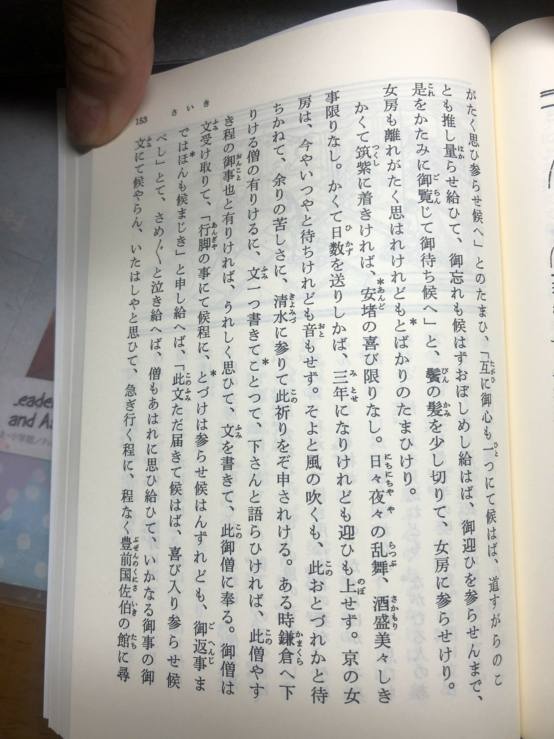 がたく思ひ参らせ候へ」とのたまひ、「互に御心も一つにて候はば、道すがらのこ
とも推し量らせ給ひて、御忘れも候はずおぼしめし給はば、御迎ひを参らせんまで、
是をかたみに御覧じて御待ち候へ」と、鬢の髪を少し切りて、女房に参らせけり。
女房も離れがたく思はれけれどもとばかりのたまひけり。
かくて筑紫に着きければ、安堵の喜び限りなし。日々夜々の乱舞、酒盛美々しき
事限りなし。かくて日数を送りしかば、三年になりけれども迎ひも上せず。京の女
房は、今やいつやと待ちけれども音もせず。そよと風の吹くも、此おとづれかと待
ちかねて、余りの苦しさに、清水に参りて此祈りをぞ申されける。ある時鎌倉へ下
りける僧の有りけるに、文一つ書きてことつて、下さんと語らひければ、此僧やす
き程の御事也と有りければ、うれしく思ひて、文を書きて、此御僧に奉る。御僧は
文受け取りて、「行脚の事にて候程に、とづけは参らせ候はんずれども、御返事ま
ではほんも候まじき」と申し給へば、「此文ただ届きて候はば、喜び入り参らせ候
べし」とて、さめ〴〵と泣き給へば、僧もあはれに思ひ給ひて、いかなる御事の御
文にて候やらん、いたはしやと思ひて、急ぎ行く程に、程なく豊前国佐伯の館に尋
153 さいき
eader
and As